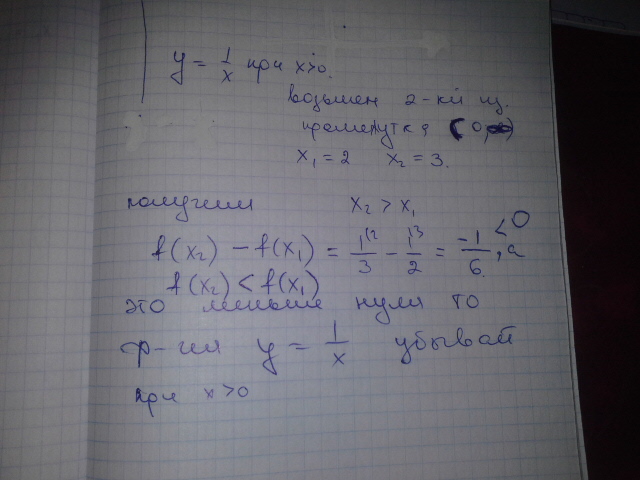 y = 1/x при x>0.
возьмем 2-ки из.
промежутка (0,∞)
x₁ = 2 x₂ = 3.
получим x₂ > x₁
f(x₂) - f(x₁) = 1^(2/3 - 1^(3/2 = -1/6, < 0 а
f(x₂) < f(x₁)
это меньше нуля то
ф-ция y = 1/x убывай
при x>0